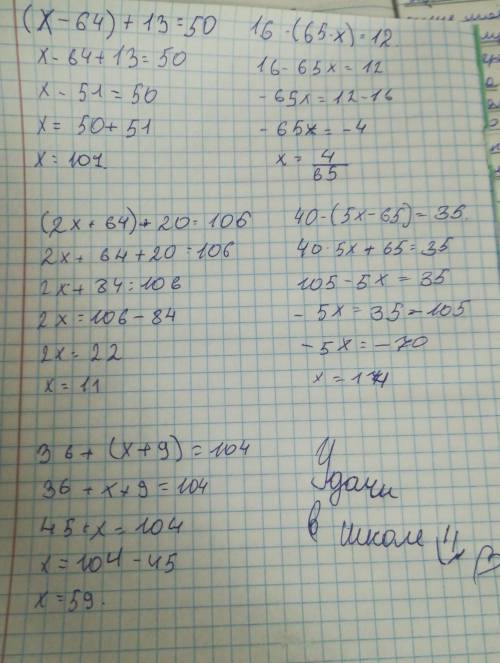 (x-64)+13=50
x-64+13=50
x-51=50
x=50+51
x=101
16-(65·x)=12
16-65x=12
-65x=12-16
-65x=-4
x=4/65
(2x+64)+20=106
2x+64+20=106
2x+84=106
2x=106-84
2x=22
x=11
40-(5x-65)=35
40-5x+65=35
105-5x=35
-5x=35-105
-5x=-70
x=14
36+(x+9)=104
36+x+9=104
45+x=104
x=104-45
x=59.
Удачи
в школе